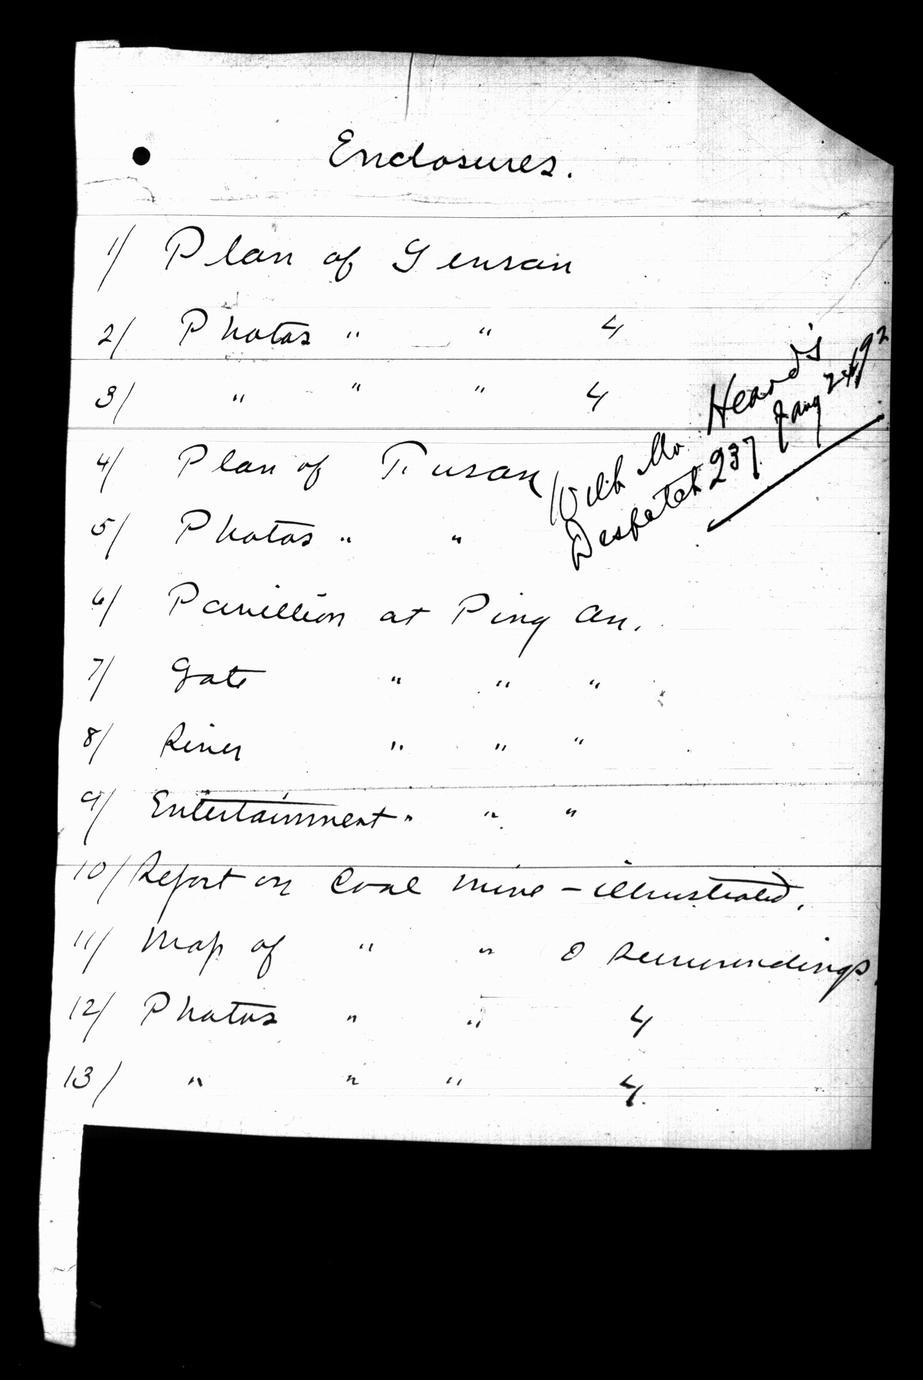 Enclosures.
1/ Plan of Gensan
2/ Photos " " 4
3/ " " " 4
4/ Plan of Fusan
With Mr Heard's
Despatch 237 Jany 24/92
5/ Photos " "
6/ Pavillion at Ping an.
7/ Gate " " "
8/ River " " "
9/ Entertainment " " "
10/ Report on Coal mine - illustrated.
11/ Map of " " & surroundings
12/ Photos " " 4
13/ " " " 4.